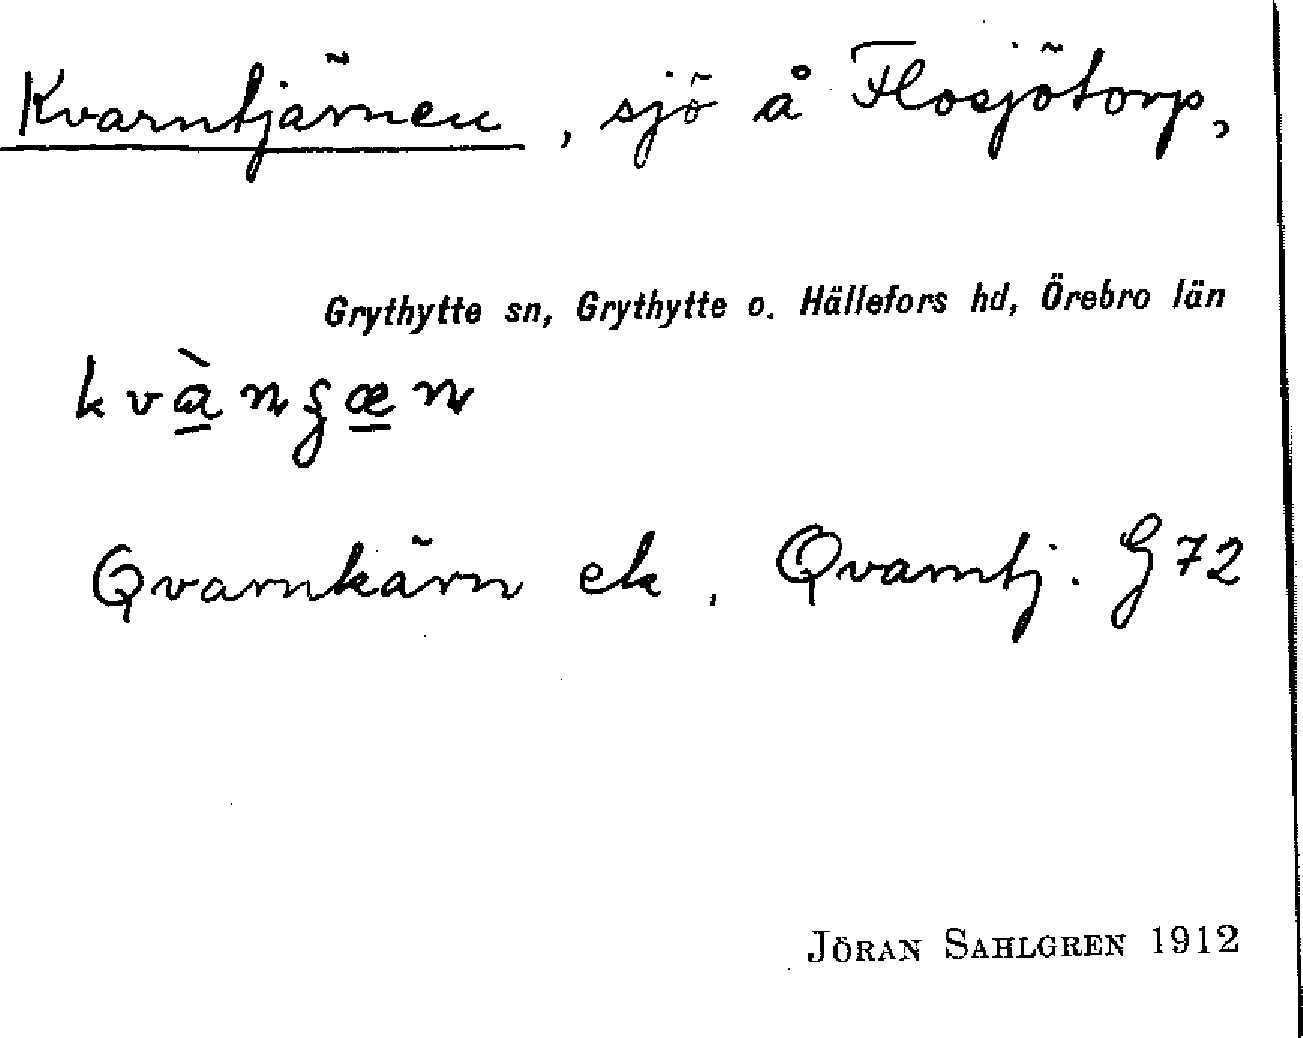 Kvarntjärnen, sjö å Flosjötorp,
Grythytte sn, Grythytte o. Hällefors hd, Örebro län
Qvarnkärn ek. Qvarntj. G72
JÖRAN SAHLGREN 1912